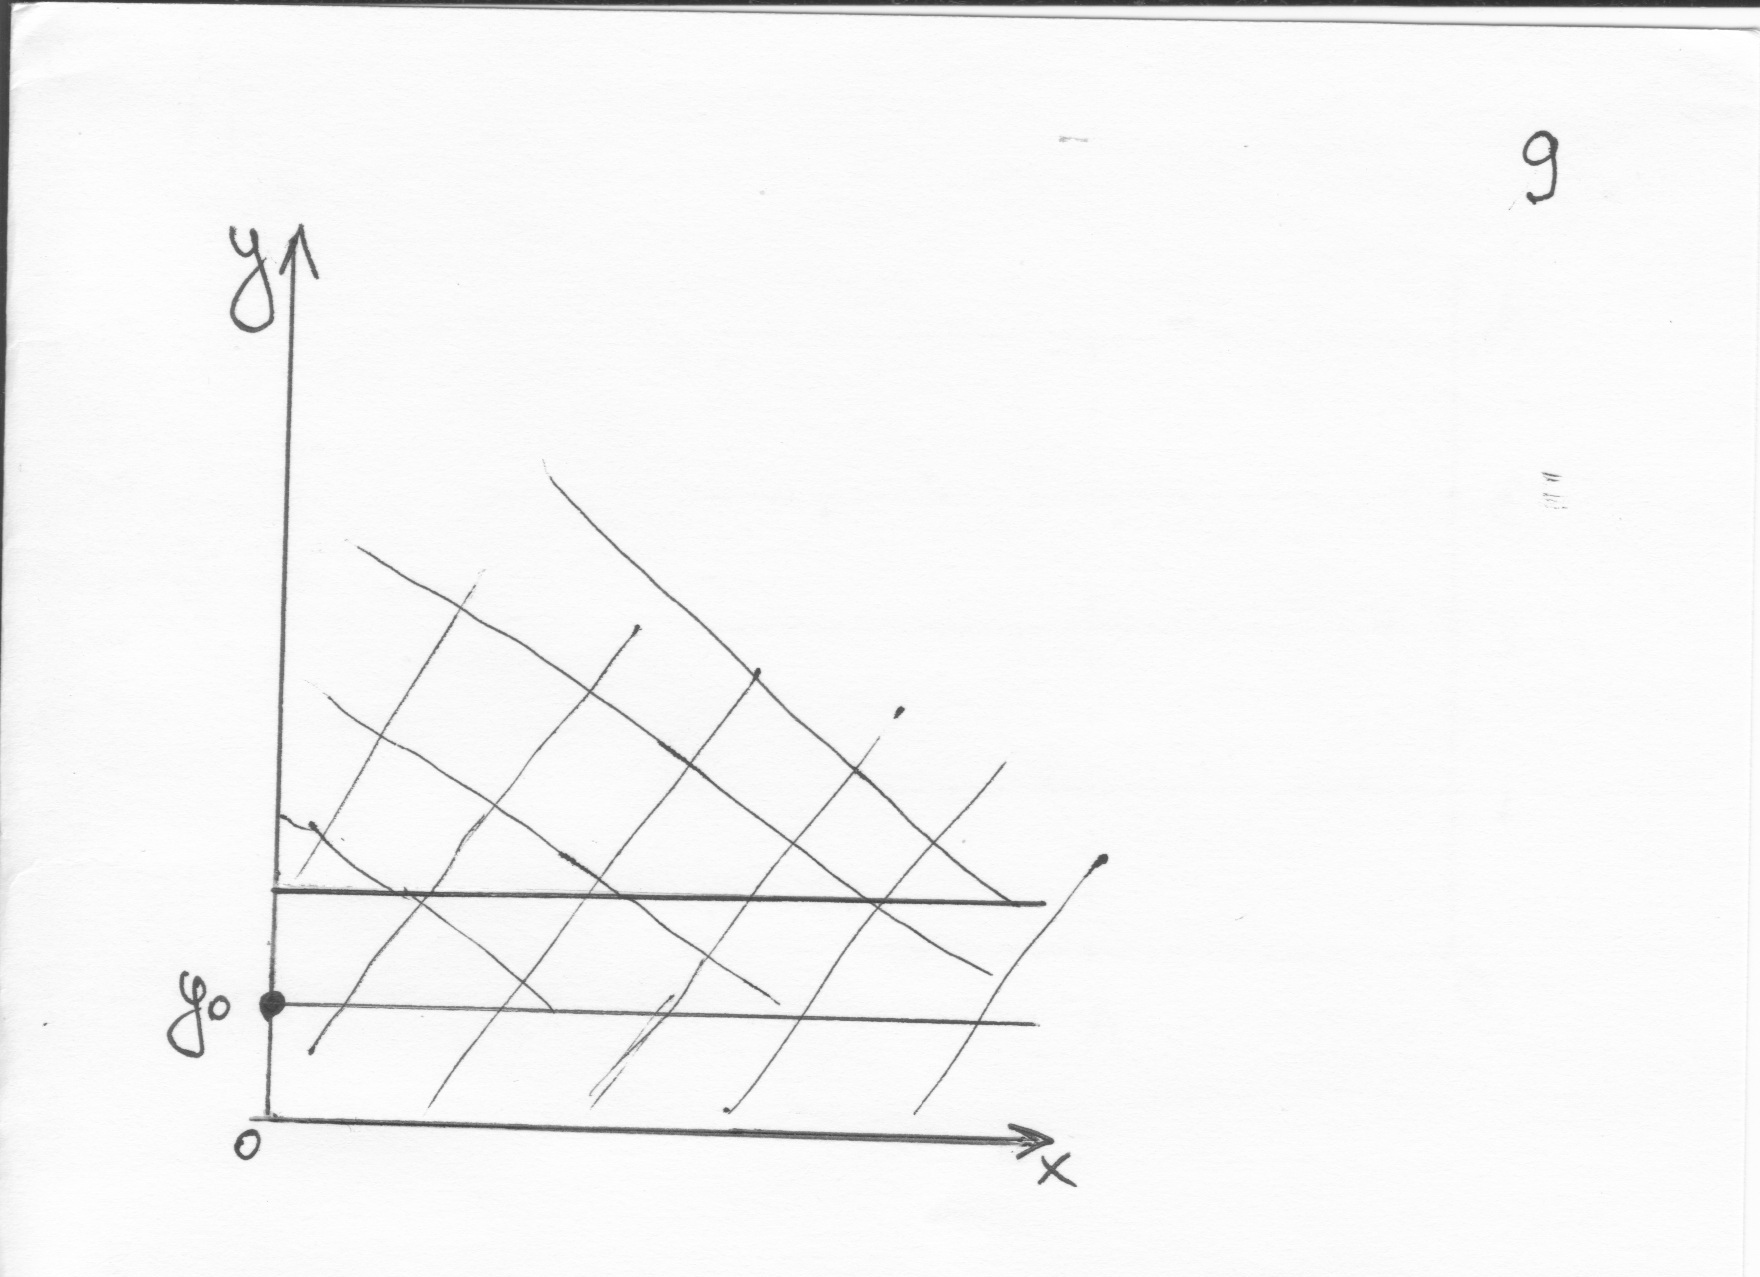 9
y
y0
0
x